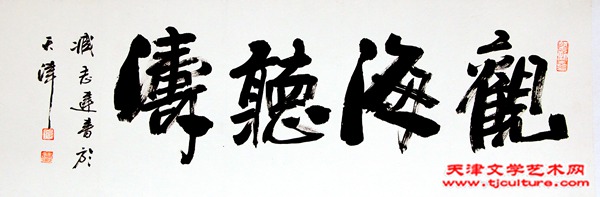 觀海聽濤
臧志建書於
天津
天津文学艺术网
www.tjculture.com